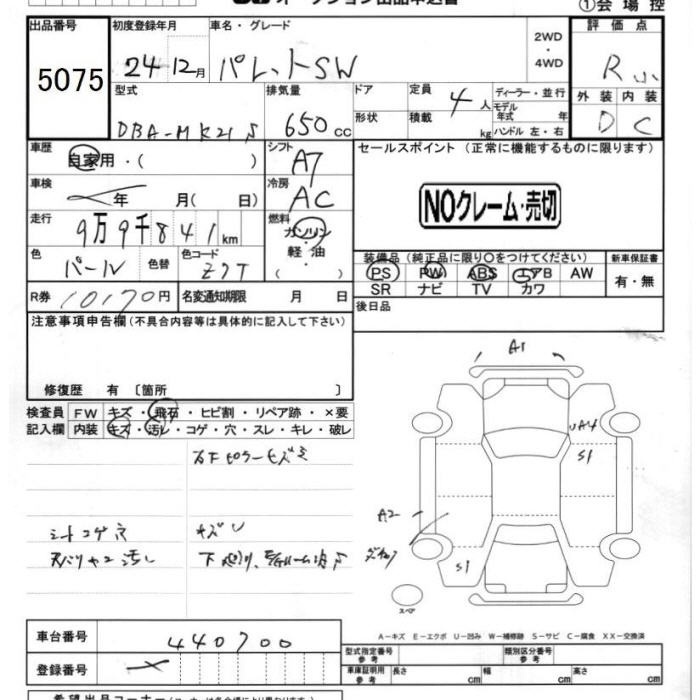 ①会場控
出品番号 初度登録年月 車名・グレード 2WD・4WD 評価点
5075 24 12月 パレットSW R
型式 排気量 ドア 定員 4人 ディーラー・並行 外装 内装
DBA-MK21S 650cc 形状 積載 kg モデル年式 年 ハンドル 左・右 D C
車歴 自家用・( ) シフト AT セールスポイント (正常に機能するものに限ります)
車検 年 月(日) 冷房 AC
NOクレーム・売切
走行 9万9千841km 燃料 ガソリン・軽油・( )
色 パール 色替 色コード Z7T
装備品(純正品に限り○をつけてください) 新車保証書
PS PW ABS エアB AW 有・無
SR ナビ TV カワ
R券 10170円 名変通知期限 月 日 後日品
注意事項申告欄(不具合内容等は具体的に記入して下さい)
修復歴 有 〔箇所 〕
検査員 FW キズ・飛石・ヒビ割・リペア跡・×要
記入欄 内装 キズ・汚レ・コゲ・穴・スレ・キレ・破レ
A1
UA4
S1
A2
S1
スペア
シートコゲ穴
A-キズ E-エクボ U-凹み W-補修跡 S-サビ C-腐食 XX-交換済
車台番号 440700
登録番号
型式指定番号 参考 類別区分番号 参考
車庫証明用 参考 長さ cm 幅 cm 高さ cm